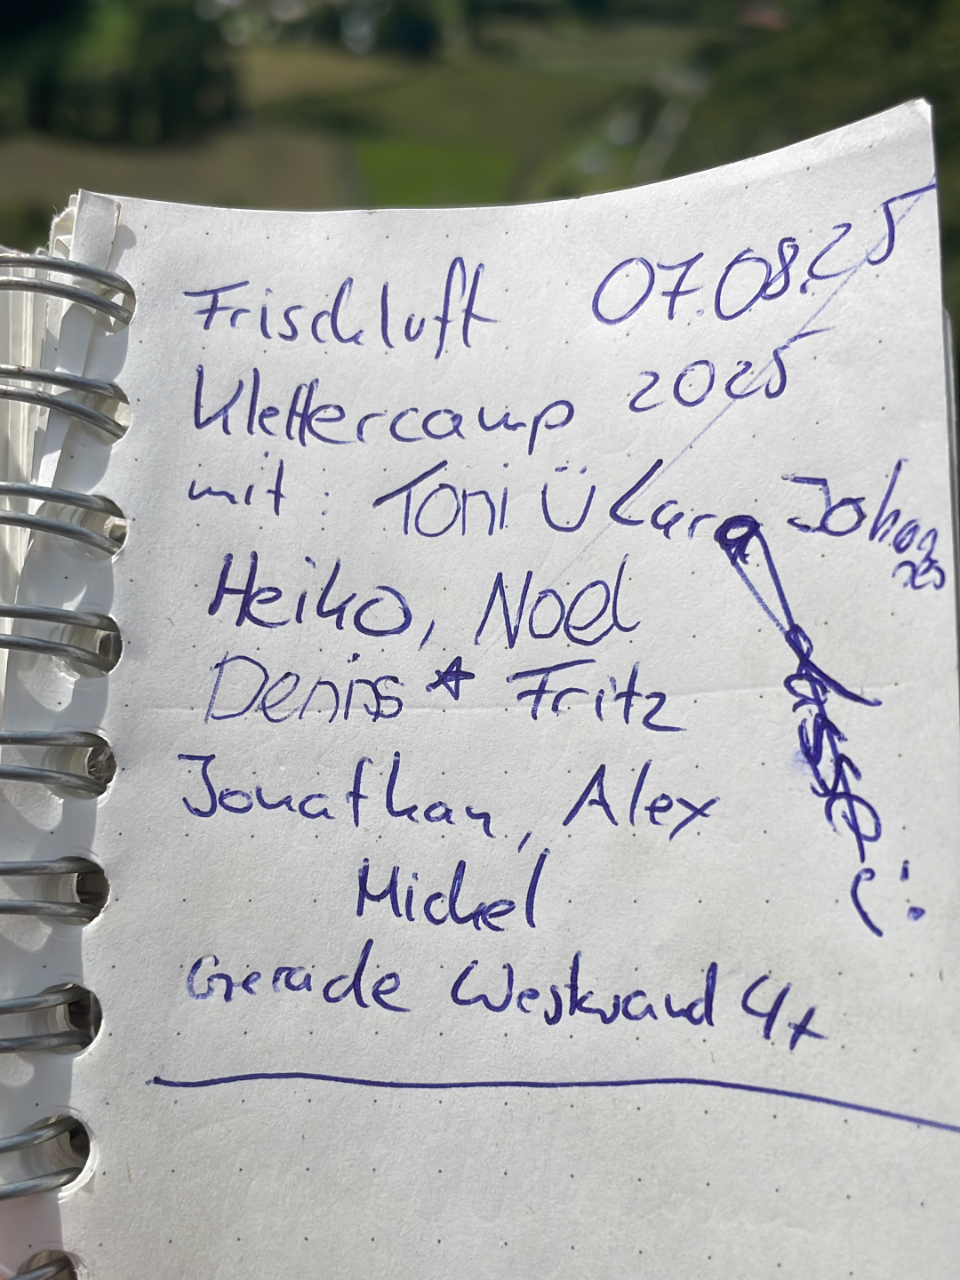 Frischluft 07.08.25
Klettercamp 2025
mit: Toni Ü Lara Johannes
Heiko, Noel
Denis ☆ Fritz
Jonathan, Alex
Michel
Gerade Westwand 4+